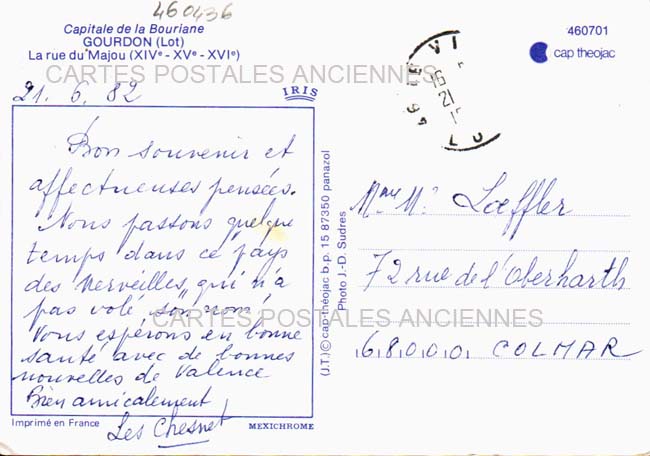 460436
Capitale de la Bouriane
GOURDON (Lot)
La rue du Majou (XIVe - XVe - XVIe)
460701
cap theojac
CARTES POSTALES ANCIENNES
21. 6. 82
IRIS
Bon souvenir et
affectueuses pensées.
Nous passons quelque
temps dans ce "pays
des Merveilles" qui n'a
pas volé son nom!
Vous espérons en bonne
santé avec de bonnes
nouvelles de Valence
Bien amicalement
Les Chesnet
Imprimé en France
MEXICHROME
(J.T.) © cap-théojac b.p. 15 87350 panazol
Photo J.-D. Sudres
Mme M. Loeffler
72 rue de l'Oberharth
68000 COLMAR
CARTES POSTALES ANCIENNES